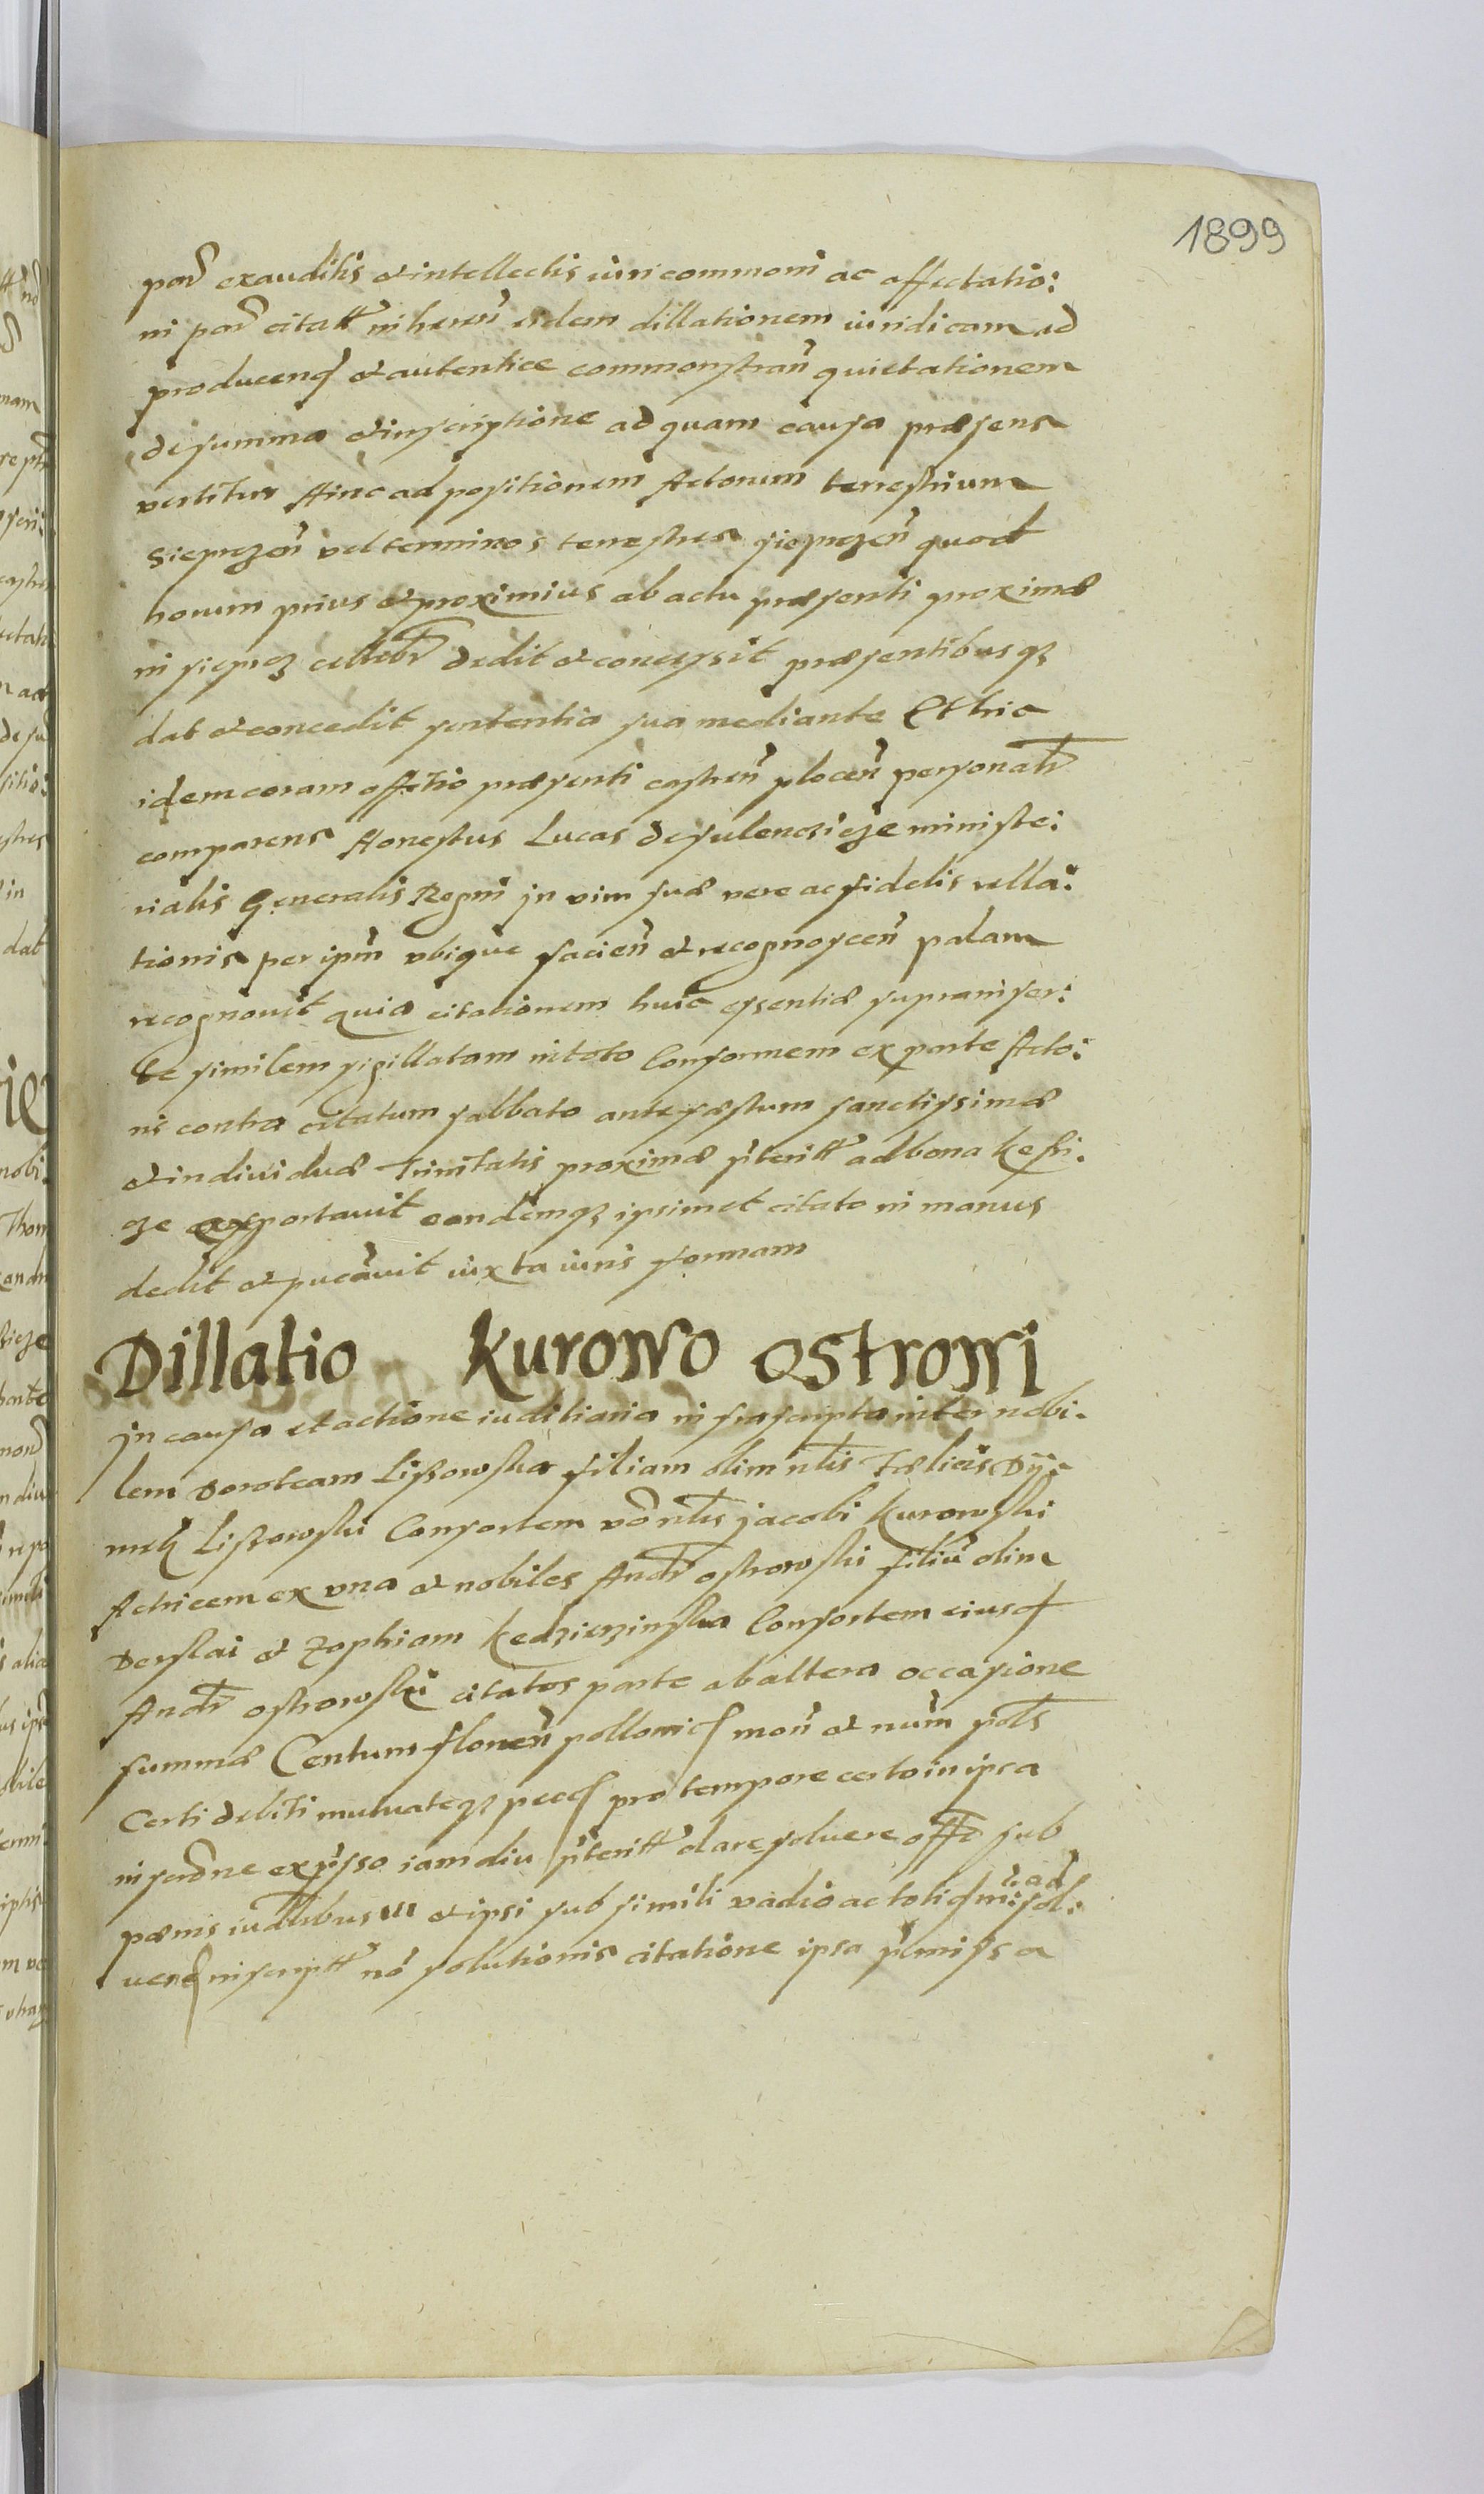 1899
par̄ exauditis et intellectis iuri commoni ac affectatio:
ni par̄ citatt inheren̄ eidem dillationem iuridicam ad
producend et autentice commonstran̄ quietationem
de summa et inscriptione ad quam causa præsens
vertitur Hinc ad positionem Actorum terrestrium
Sieprzen̄ vel terminos terrestres sieprzen̄ quod
horum prius et proximius ab actu præsenti proximæ
in sieprz cellebr̄ dedit et concessit præsentibusqꝫ
dat et concedit sententia sua mediante Et hic
idem coram offitio præsenti castren̄ plocen̄ personatr̄
comparens Honestus Lucas de sulencicze ministe:
rialis Generalis Regni in vim suæ vere ac fidelis rella:
tionis per ipm̄ vbique facien̄ et recognoscen̄ palam
recognouit quia citationem huic essentiæ suprainser:
te similem sigillatam in toto Conformem ex parte Acto:
ris contra citatum sabbato ante fæstum sanctissimæ
et indiuiduæ Trinitatis proximæ p̄teritt ad bona Kessi:
cze exportauit eandemqꝫ ipsimet citato in manus
dedit et pucāuit iuxta iuris formam
Dillatio Kurowo Ostrowi
In causa et actione iuditiaria infrascripta inter nobi:
lem Doroteam Lissowska filiam olim nlis Fælicis
Lissowski Consortem vō nlis Jacobi Kurowski
Actricem ex vna et nobiles Andr̄ ostrowski filiū olim
Derslai et Zophiam Kedzierzinska Consortem eiusd
Andr̄ ostrowski citatos parte ab altera occasione
summæ Centum floren̄ pollonicl mon̄ et num̄ pols
Certi debiti mutuateqꝫ pecc pro tempore certo in ipsa
inscrōne expsso iamdiu p̄teritt dare soluere offr̄ sub
pœnis iudlibus III et ipsi sub simili vadio ac totid m: r̄ ad sol:
uend inscriptt nō solutionis citatione ipsa p̄missa